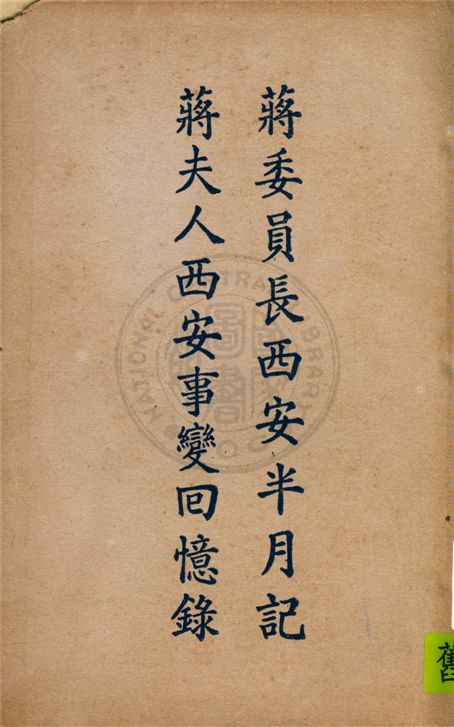 蔣委員長西安半月記
蔣夫人西安事變回憶錄
NATIONAL CENTRAL LIBRARY
舊